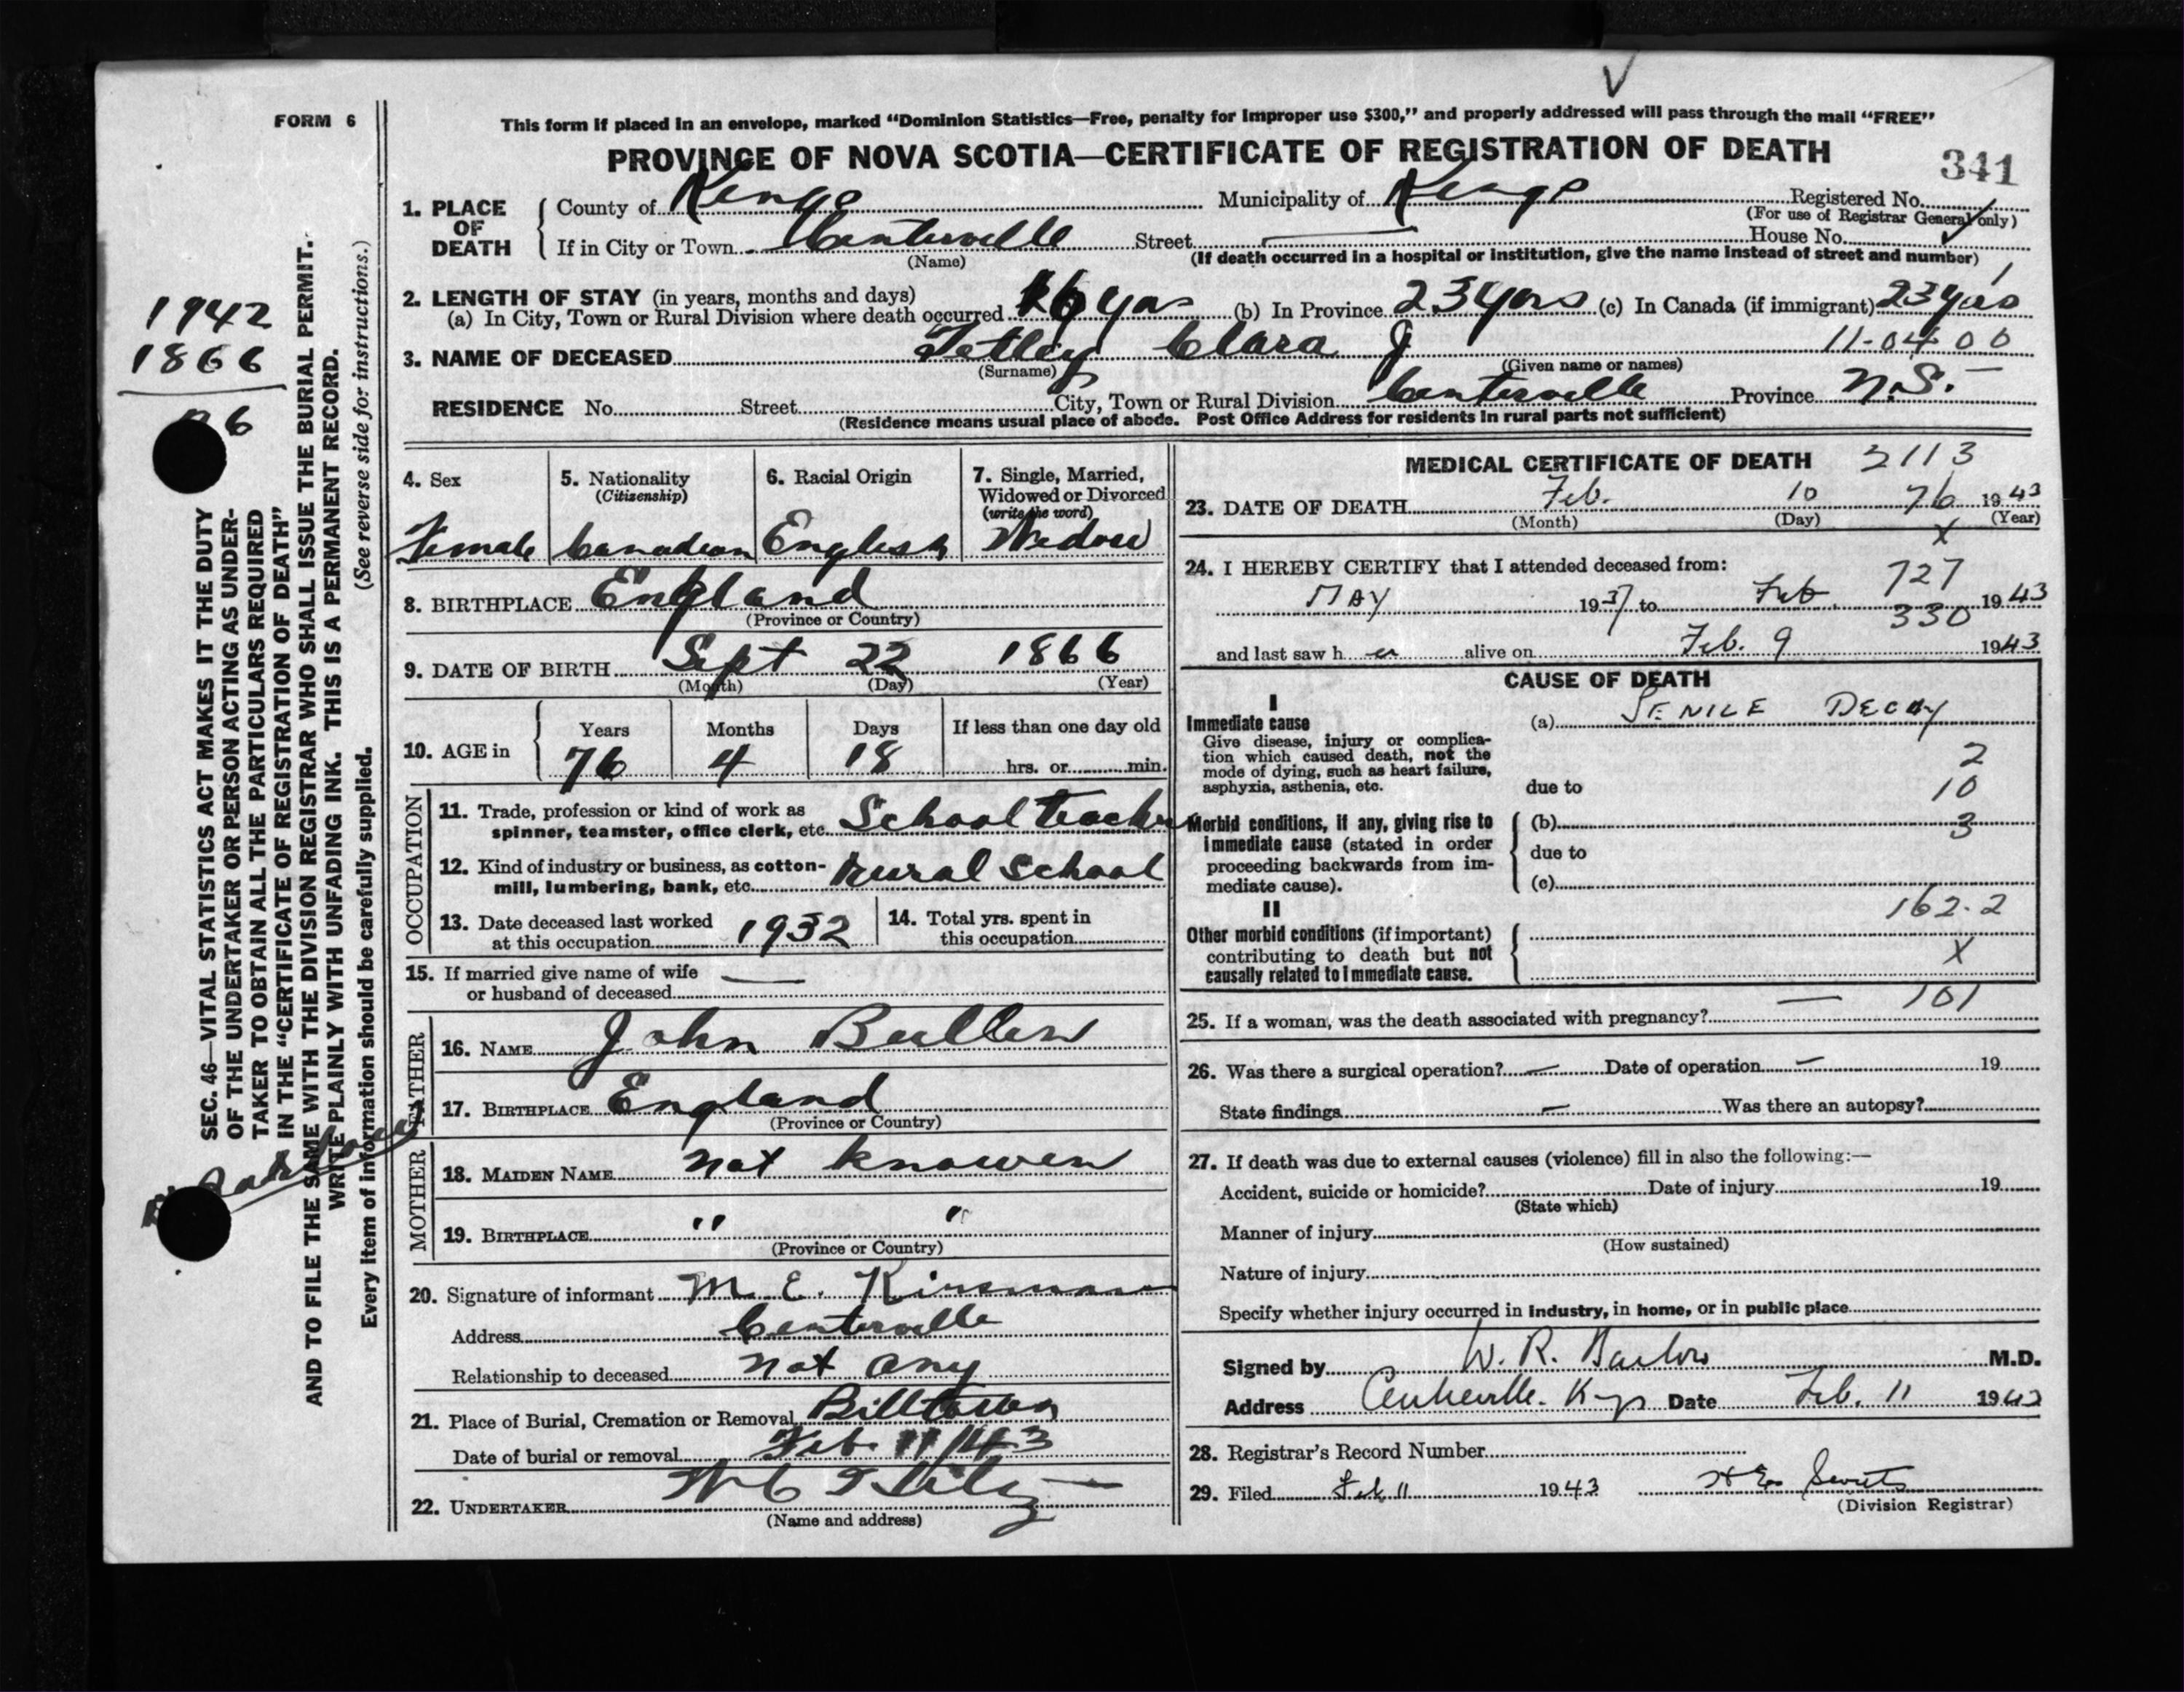 FORM 6
This form if placed in an envelope, marked "Dominion Statistics—Free, penalty for improper use $300," and properly addressed will pass through the mail "FREE"
PROVINCE OF NOVA SCOTIA—CERTIFICATE OF REGISTRATION OF DEATH
341
1. PLACE OF DEATH
County of Kings Municipality of Kings Registered No.
(For use of Registrar General only)
If in City or Town Centerville Street House No.
(Name) (If death occurred in a hospital or institution, give the name instead of street and number)
2. LENGTH OF STAY (in years, months and days)
(a) In City, Town or Rural Division where death occurred 16 yrs (b) In Province 23 yrs (c) In Canada (if immigrant) 23 yrs
3. NAME OF DECEASED Tetley Clara J 11-04 00
(Surname) (Given name or names)
RESIDENCE No. Street City, Town or Rural Division Centerville Province N.S.
(Residence means usual place of abode. Post Office Address for residents in rural parts not sufficient)
4. Sex 5. Nationality (Citizenship) 6. Racial Origin 7. Single, Married, Widowed or Divorced (write the word)
Female Canadian English Widow
8. BIRTHPLACE England
(Province or Country)
9. DATE OF BIRTH Sept 22 1866
(Month) (Day) (Year)
10. AGE in Years Months Days If less than one day old
76 4 18 hrs. or min.
OCCUPATION
11. Trade, profession or kind of work as spinner, teamster, office clerk, etc. School teacher
12. Kind of industry or business, as cotton-mill, lumbering, bank, etc. Rural School
13. Date deceased last worked at this occupation 1932 14. Total yrs. spent in this occupation
15. If married give name of wife or husband of deceased —
FATHER
16. NAME John Bullen
17. BIRTHPLACE England
(Province or Country)
MOTHER
18. MAIDEN NAME not knowen
19. BIRTHPLACE " "
(Province or Country)
20. Signature of informant M. E. Kinsman
Address Centerville
Relationship to deceased not any
21. Place of Burial, Cremation or Removal Billtown
Date of burial or removal Feb. 11/43
22. UNDERTAKER
(Name and address)
MEDICAL CERTIFICATE OF DEATH 2113
23. DATE OF DEATH Feb. 10 76 1943
(Month) (Day) (Year)
X
24. I HEREBY CERTIFY that I attended deceased from: 727
May 1937 to Feb. 1943
330
and last saw h er alive on Feb. 9 1943
CAUSE OF DEATH
I
Immediate cause
Give disease, injury or complication which caused death, not the mode of dying, such as heart failure, asphyxia, asthenia, etc.
(a) SENILE DECAY
2
due to 10
Morbid conditions, if any, giving rise to immediate cause (stated in order proceeding backwards from immediate cause).
(b) 3
due to
(c)
II 162.2
Other morbid conditions (if important) contributing to death but not causally related to immediate cause.
X
101
25. If a woman, was the death associated with pregnancy? —
26. Was there a surgical operation? — Date of operation — 19
State findings — Was there an autopsy?
27. If death was due to external causes (violence) fill in also the following:—
Accident, suicide or homicide? Date of injury 19
(State which)
Manner of injury
(How sustained)
Nature of injury
Specify whether injury occurred in industry, in home, or in public place
Signed by W. R. Barlow M.D.
Address Centreville. Kings Date Feb. 11 1943
28. Registrar's Record Number
29. Filed Feb 11 1943
(Division Registrar)
1942
1866
SEC. 46—VITAL STATISTICS ACT MAKES IT THE DUTY
OF THE UNDERTAKER OR PERSON ACTING AS UNDER-
TAKER TO OBTAIN ALL THE PARTICULARS REQUIRED
IN THE "CERTIFICATE OF REGISTRATION OF DEATH"
AND TO FILE THE SAME WITH THE DIVISION REGISTRAR WHO SHALL ISSUE THE BURIAL PERMIT.
WRITE PLAINLY WITH UNFADING INK. THIS IS A PERMANENT RECORD.
Every item of information should be carefully supplied. (See reverse side for instructions.)